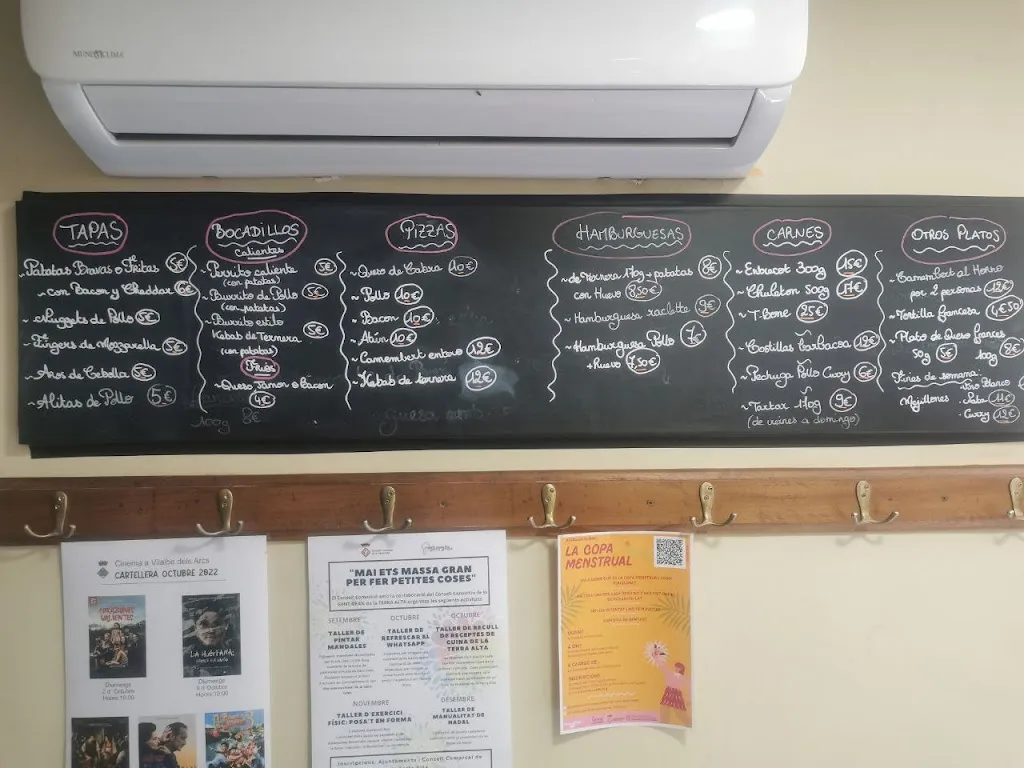 MUNDOCLIMA
TAPAS
Patatas Bravas o Fritas 5€
~ con Bacon y Cheddar 6€
~ Nuggets de Pollo 5€
~ Fingers de Mozzarella 5€
~ Aros de Cebolla 5€
~ Alitas de Pollo 5€
BOCADILLOS
Calientes
~ Perrito caliente 5€
(con patatas)
~ Burrito de Pollo 5€
(con patatas)
~ Burrito estilo
Kebab de Ternera 5€
(con patatas)
Frios
~ Queso Jamon o bacon
4€
100g 8€
PIZZAS
~ Queso de Cabra 10€
~ Pollo 10€
~ Bacon 10€
~ Atún 10€
~ Camembert entero 12€
~ Kebab de ternera 12€
HAMBURGUESAS
~ de Ternera 170g + patatas 8€
con Huevo 8,50€
~ Hamburguesa raclette 9€
~ Hamburguesa Pollo 7€
+ Huevo 7,50€
CARNES
~ Entrecot 300g 15€
~ Chuleton 500g 17€
~ T-bone 25€
~ Costillas barbacoa 12€
~ Pechuga Pollo Curry 6€
~ Tartar 170g 9€
(de viernes a domingo)
OTROS PLATOS
~ Camembert al Horno
por 2 personas 12€
~ Tortilla francesa 4€50
~ Plato de Queso frances
50g 5€ 100g 9€
Fines de semana:
Mejillones
Vino Blanco
Nata 11€
Curry 12€
Cinema a Vilalba dels Arcs
CARTELLERA OCTUBRE 2022
Diumenge
2 d' Octubre
LA HUÉRFANA:
Diumenge
9 d'Octubre
"MAI ETS MASSA GRAN
PER FER PETITES COSES"
SETEMBRE
TALLER DE
PINTAR
MANDALES
OCTUBRE
TALLER DE
REFRESCAR EL
WHATSAPP
OCTUBRE
TALLER DE RECULL
DE RECEPTES DE
CUINA DE LA
TERRA ALTA
NOVEMBRE
TALLER D'EXERCICI
FÍSIC: POSA'T EN FORMA
DESEMBRE
TALLER DE
MANUALITAT DE
NADAL
Inscripcions: Ajuntaments i Consell Comarcal de
LA COPA
MENSTRUAL